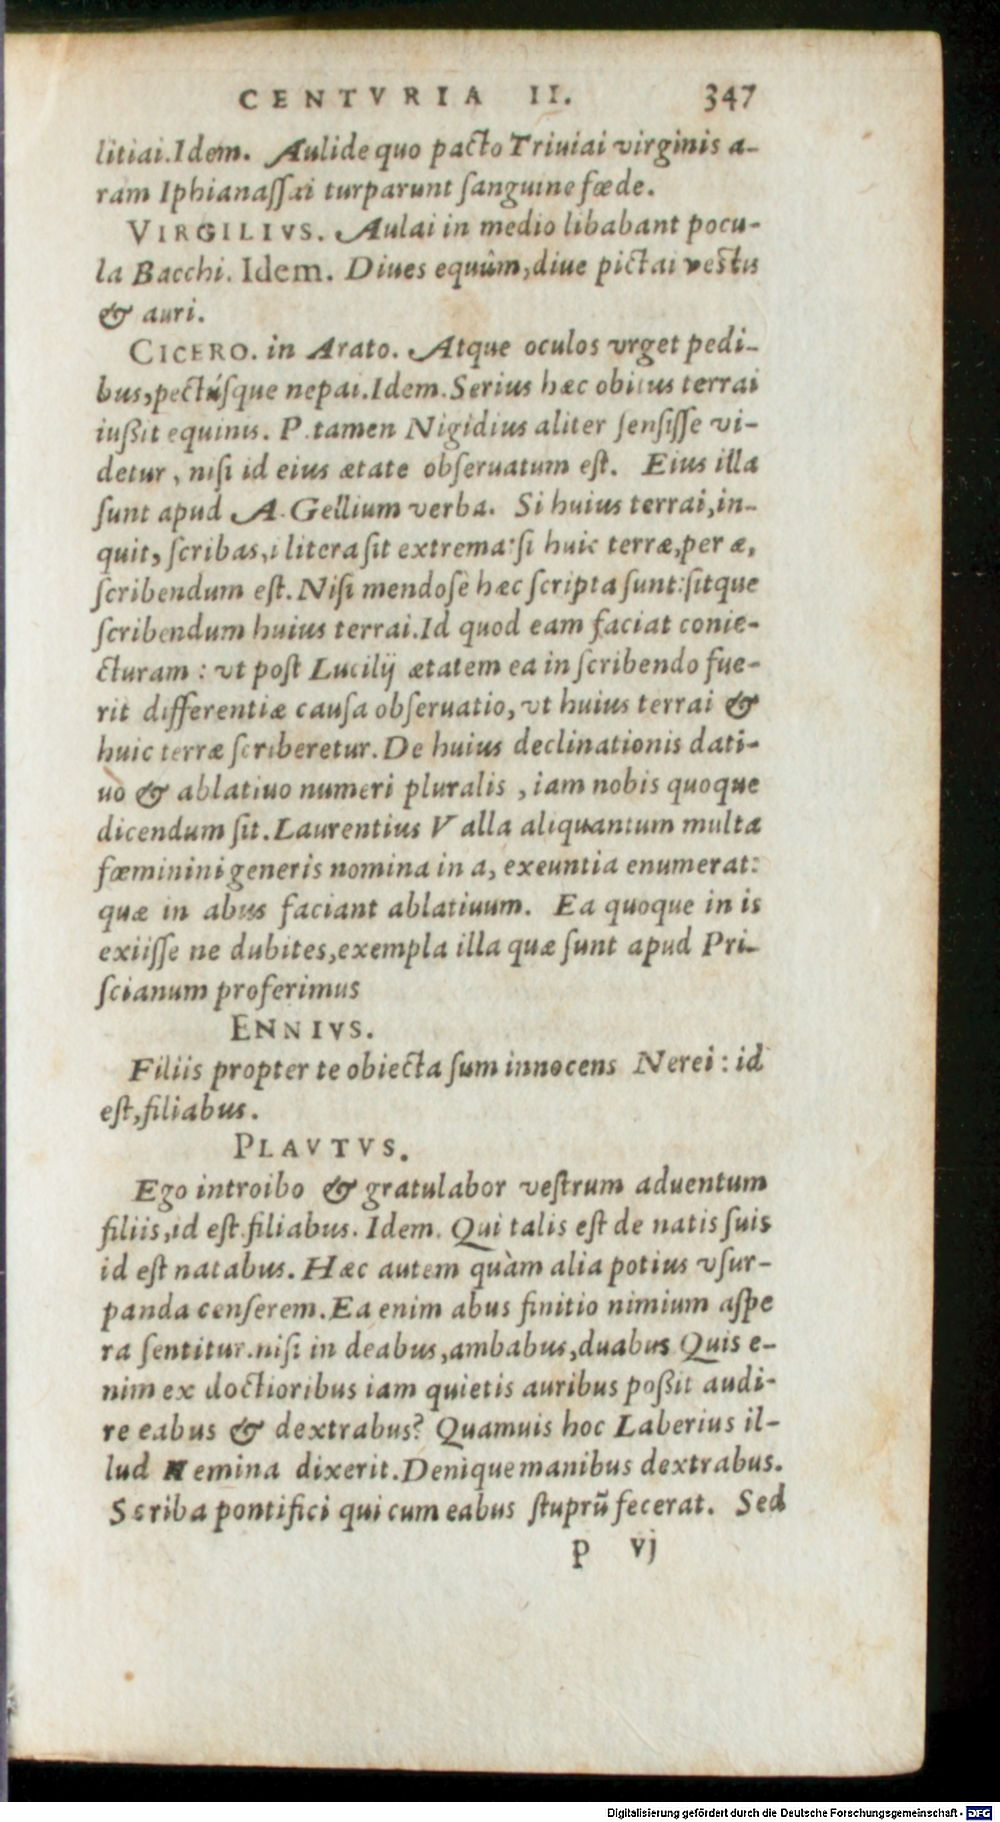 CENTVRIA II. 347
litiai. Idem. Aulide quo pacto Triuiai virginis a-
ram Iphianaſſai turparunt ſanguine fœde.
VIRGILIVS. Aulai in medio libabant pocu-
la Bacchi. Idem. Diues equûm, diue pictai vestis
& auri.
CICERO. in Arato. Atque oculos vrget pedi-
bus, pectúſque nepai. Idem. Serius hæc obitus terrai
iußit equinis. P. tamen Nigidius aliter ſenſiſſe vi-
detur, niſi id eius ætate obſeruatum eſt. Eius illa
ſunt apud A. Gellium verba. Si huius terrai, in-
quit, ſcribas, i litera ſit extrema: ſi huic terræ, per æ,
ſcribendum eſt. Niſi mendoſè hæc ſcripta ſunt: ſitque
ſcribendum huius terrai. Id quod eam faciat conie-
cturam: vt poſt Lucilij ætatem ea in ſcribendo fue-
rit differentiæ cauſa obſeruatio, vt huius terrai &
huic terræ ſcriberetur. De huius declinationis dati-
uo & ablatiuo numeri pluralis, iam nobis quoque
dicendum ſit. Laurentius Valla aliquantum multa
fœminini generis nomina in a, exeuntia enumerat:
quæ in abus faciant ablatiuum. Ea quoque in is
exiiſſe ne dubites, exempla illa quæ ſunt apud Pri-
ſcianum proferimus
ENNIVS.
Filiis propter te obiecta ſum innocens Nerei: id
eſt, filiabus.
PLAVTVS.
Ego introibo & gratulabor veſtrum aduentum
filiis, id eſt filiabus. Idem. Qui talis eſt de natis ſuis
id eſt natabus. Hæc autem quàm alia potius vſur-
panda cenſerem. Ea enim abus finitio nimium aſpe
ra ſentitur. niſi in deabus, ambabus, duabus Quis e-
nim ex doctioribus iam quietis auribus poßit audi-
re eabus & dextrabus? Quamuis hoc Laberius il-
lud Nemina dixerit. Denique manibus dextrabus.
Scriba pontifici qui cum eabus ſtuprū fecerat. Sed
p vj
Digitalisierung gefördert durch die Deutsche Forschungsgemeinschaft - DFG